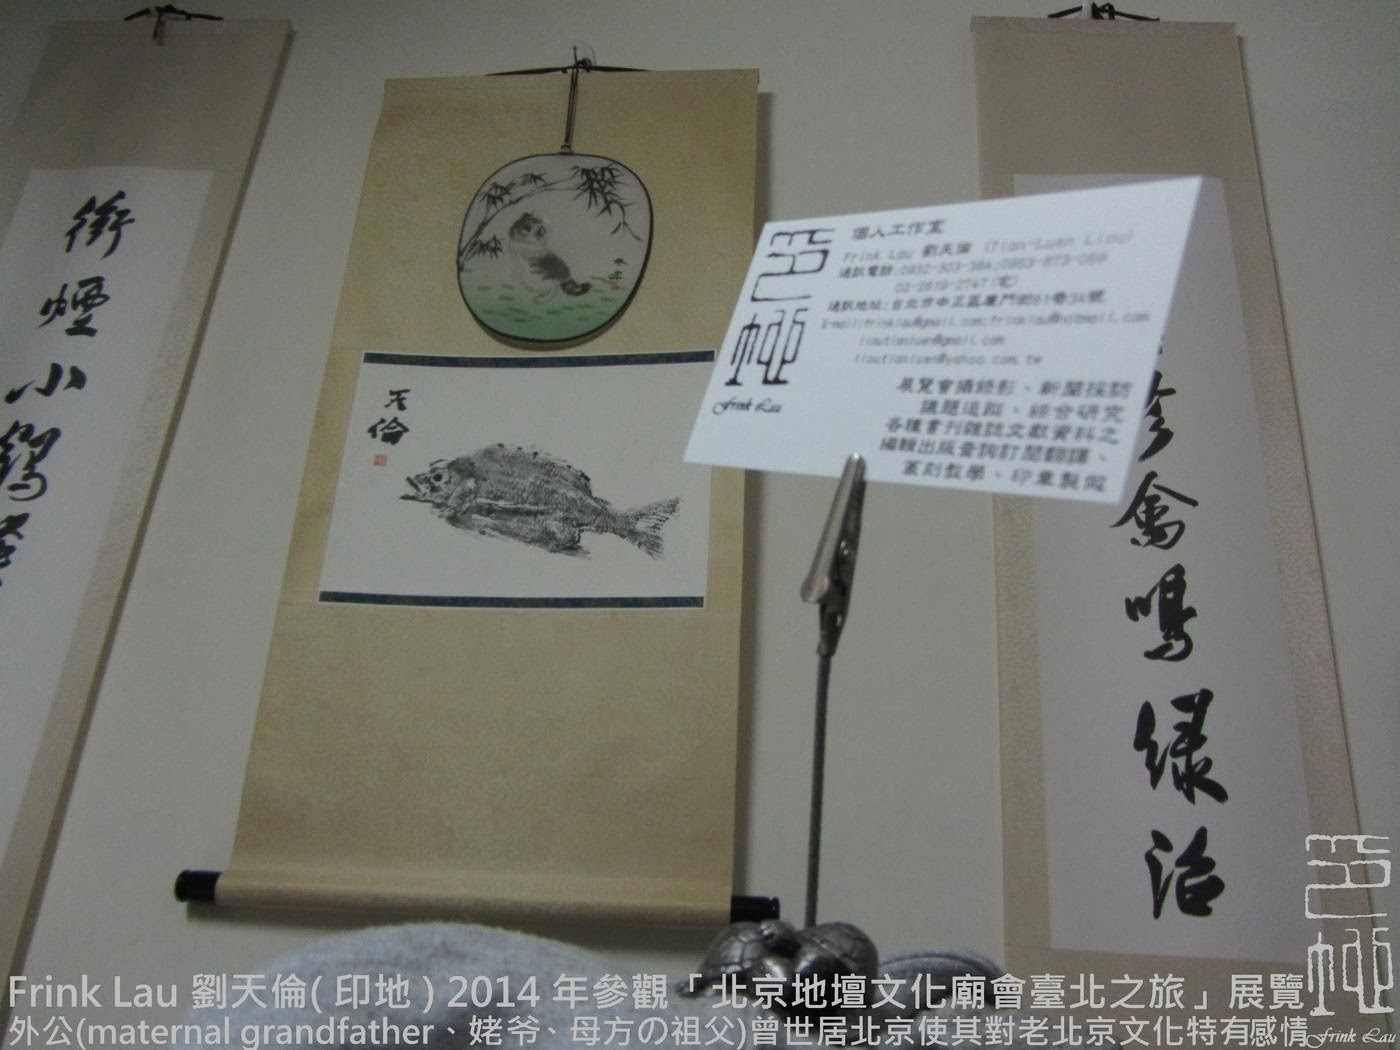 衔
煙
小
鶴
天
倫
個人工作室
Frink Lau 劉天倫 (Tian-Luen Liou)
通訊電話:0932-303-384;0953-873-059
02-2819-2747(宅)
通訊地址:台北市中正區廈門街81巷34號
E-mail:frinklau@gmail.com;frinklau@hotmail.com
lioutianluen@gmail.com
lioutianluen@yahoo.com.tw
Frink Lau
展覽會攝錄影、新聞採訪
議題追蹤、綜合研究
各種書刊雜誌文獻資料之
編輯出版查詢訂閱翻譯、
篆刻教學、印章製做
珍
禽
鳴
绿
治
Frink Lau 劉天倫( 印地 ) 2014 年參觀「北京地壇文化廟會臺北之旅」展覽
外公(maternal grandfather、姥爷、母方の祖父)曾世居北京使其對老北京文化特有感情
Frink Lau